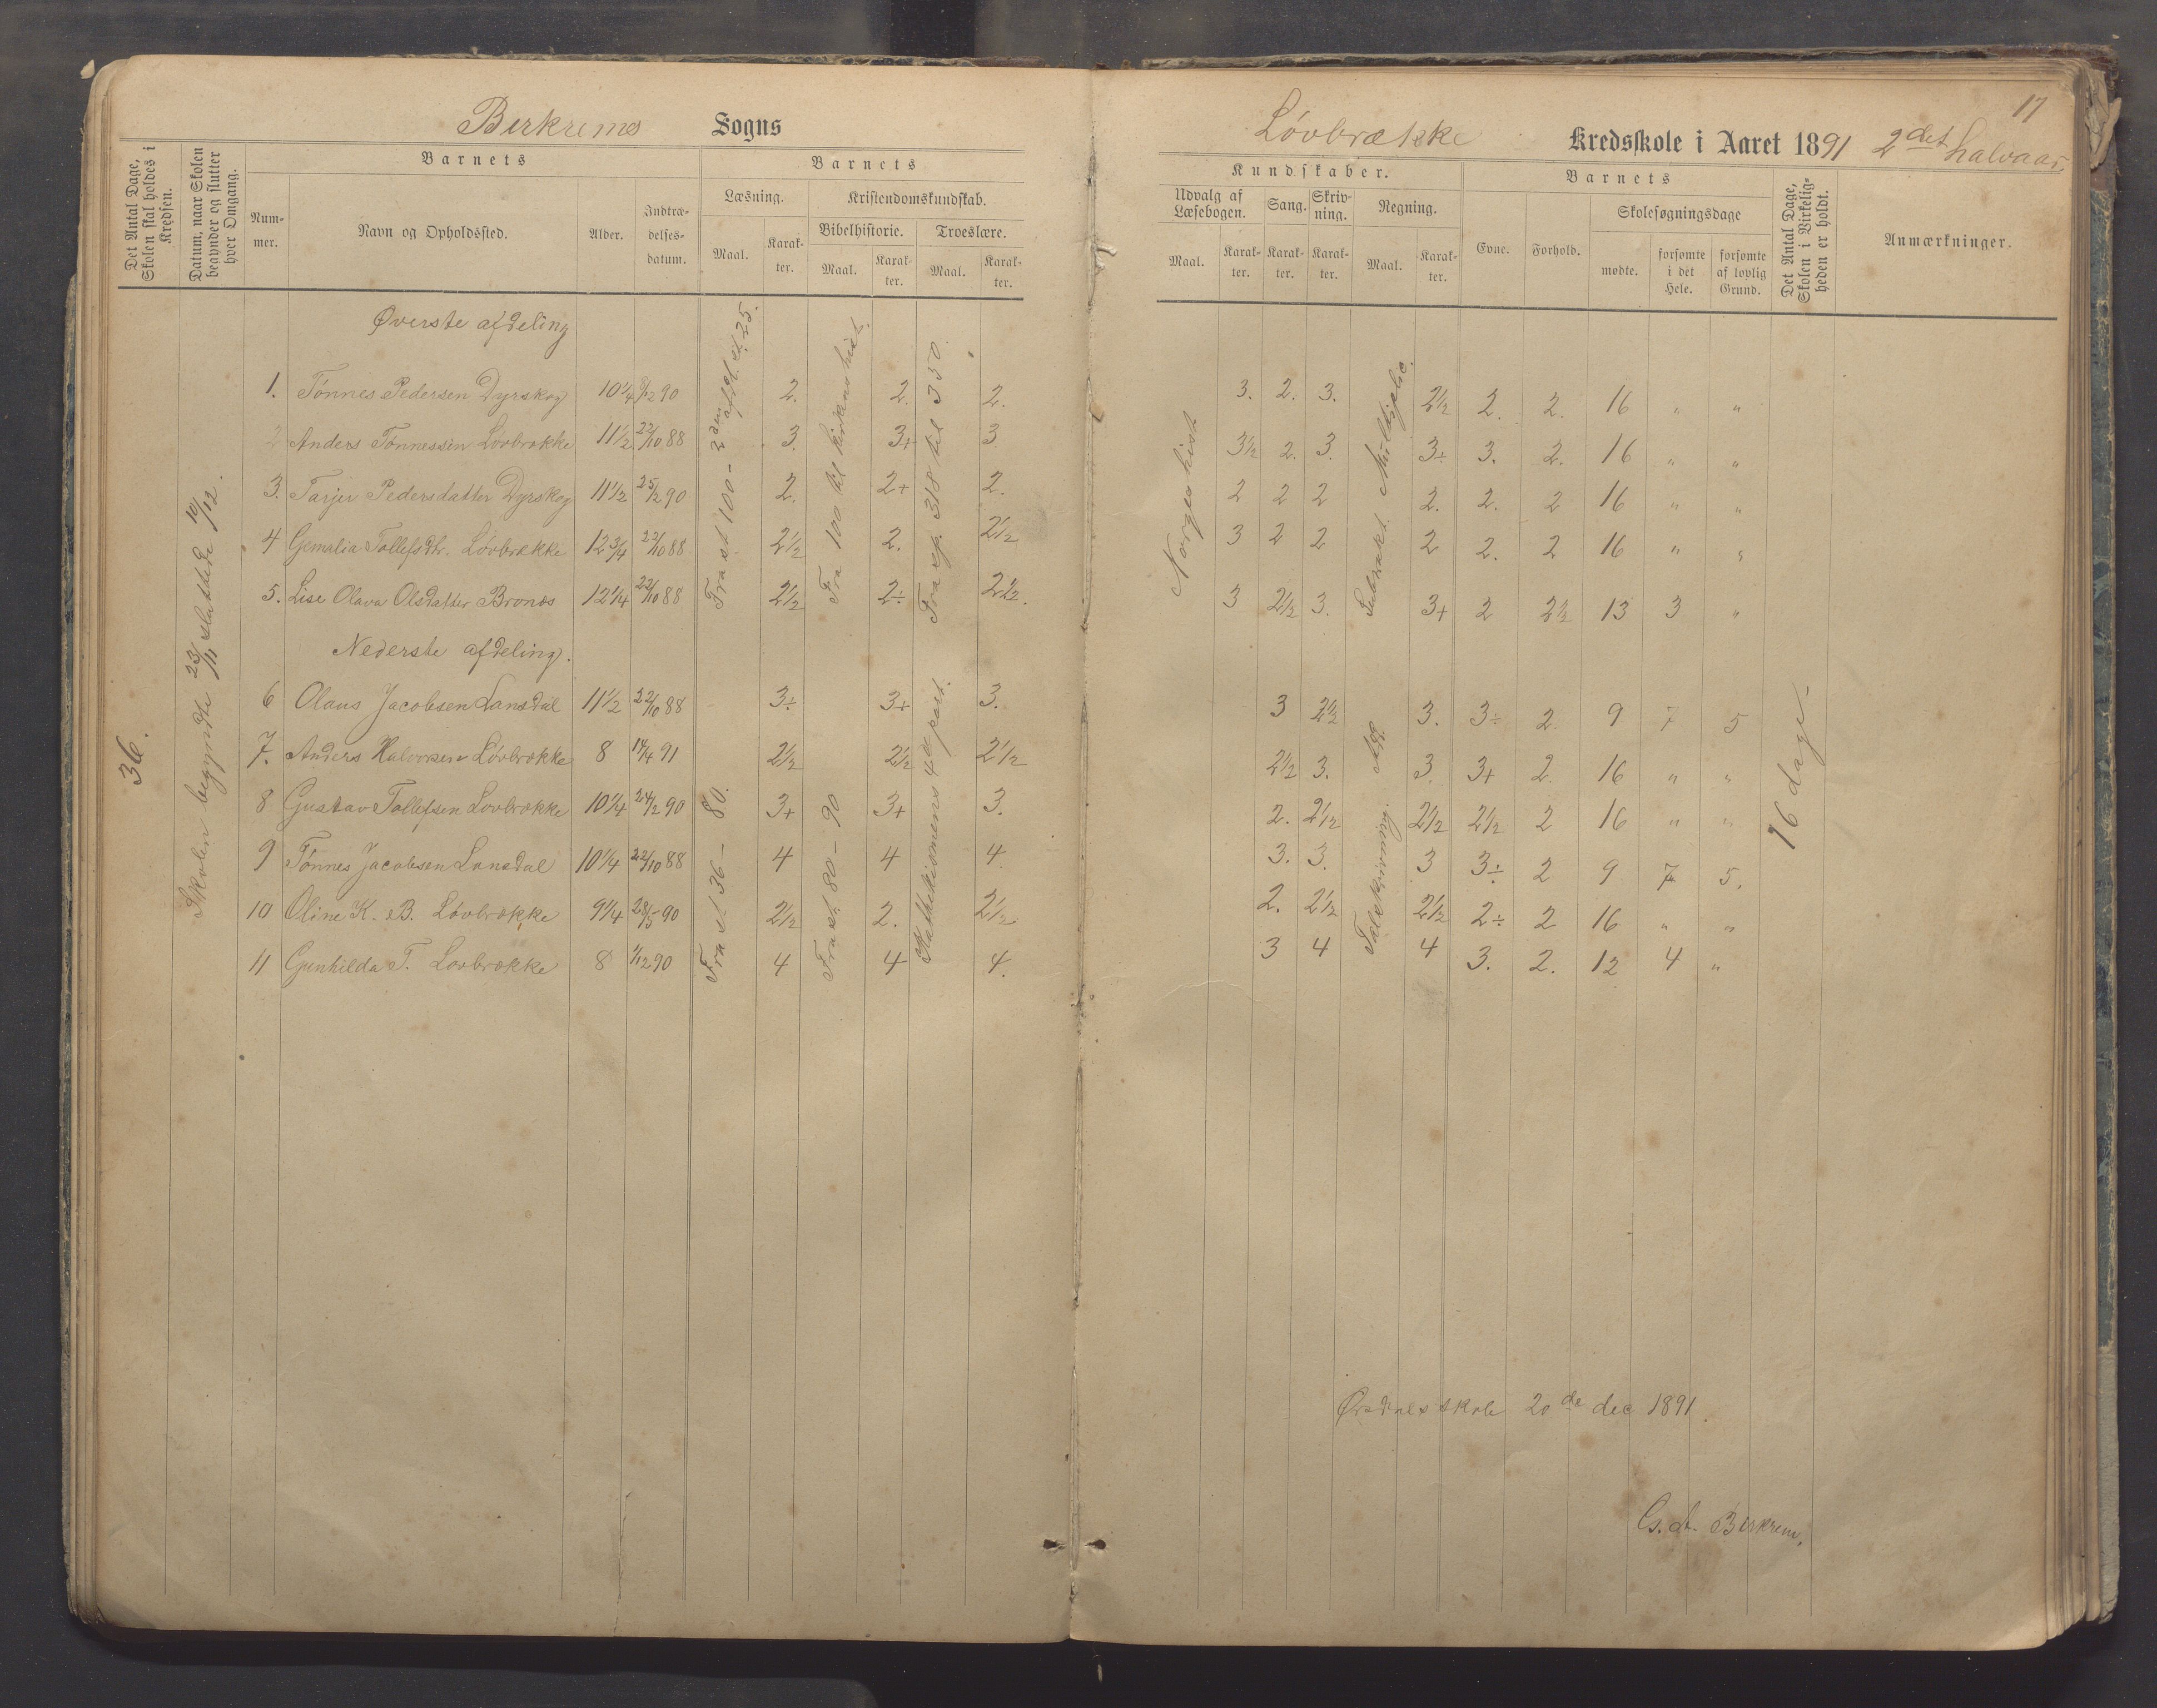 Birkrems Sogns
Løvbrække Kredsskole i Aaret 1891 2det halvaar
17
Det Antal Dage, Skolen skal holdes i Kredsen.
Datum, naar Skolen begynder og slutter hver Omgang.
Barnets
Nummer.
Navn og Opholdssted.
Alder.
Indtrædelsesdatum.
Barnets
Læsning.
Maal.
Karakter.
Kristendomskundskab.
Bibelhistorie.
Maal.
Karakter.
Troeslære.
Maal.
Karakter.
Kundskaber.
Udvalg af Læsebogen.
Maal.
Karakter.
Sang.
Karakter.
Skrivning.
Karakter.
Regning.
Maal.
Karakter.
Barnets
Evne.
Forhold.
Skolesøgningsdage
mødte.
forsømte i det Hele.
forsømte af lovlig Grund.
Det Antal Dage, Skolen i Virkeligheden er holdt.
Anmærkninger.
36.
Skolen begyndte 23/11 sluttede 10/12.
Øverste afdeling
1. Tønnes Pedersen Dyrskog 10 1/4 9/12 90 2. 2. 2. 3. 2. 3. 2 1/2 2. 2. 16 " "
2 Anders Tønnessen Løvbrække 11 1/2 22/10 88 3. 3+ 3 3 1/2 2. 3. 3÷ 3. 2. 16 " "
3. Tarjer Pedersdatter Dyrskog 11 1/2 25/2 90 2. 2+ 2. 2 2 2 2. 2. 2 16 " "
4 Gemalia Tollefsdtr. Løvbrække 12 3/4 22/10 88 2 1/2 2. 2 1/2 3 2 2 2 2. 2 16 " "
5. Lise Olava Olsdatter Bronæs 12 1/4 22/10 88 2 1/2 2÷ 2 1/2. 3 2 1/2 3. 3+ 2 2 1/2 13 3 "
Fra st 100 - 2den afd. st. 25.
Fra 100 til kirkens hist.
Fra sp. 318 til 350.
Norges hist
Subtrakt. Multiplic.
Nederste afdeling.
6 Olaus Jacobsen Lansdal 11 1/2 22/10 88 3÷ 3+ 3. 3 2 1/2 3. 3÷ 2. 9 7 5
7. Anders Halvorsen Løvbrække 8 14/4 91 2 1/2 2 1/2 2 1/2 2 1/2 3. 3 3+ 2. 16 " "
8 Gustav Tollefsen Løvbrække 10 1/4 24/2 90 3+ 3+ 3. 2. 2 1/2 2 1/2 2 1/2 2 16 " "
9 Tønnes Jacobsen Lansdal 10 1/4 22/10 88 4 4 4. 3. 3. 3 3÷ 2 9 7 5.
10 Oline K. B. Løvbrække 9 1/4 28/5 90 2 1/2 2. 2 1/2 2. 2 1/2 2 1/2 2÷ 2 16 " "
11 Gunhilda T. Løvbrække 8 1/12 90 4 4 4. 3 4 4 3. 2. 12 4 "
Fra st 36 - 80.
Fra st. 80 - 90
Kathekismens 4de part.
Talskrivning. Add.
16 dage.
Ørsdals skole 20de dec 1891.
Birkrem.